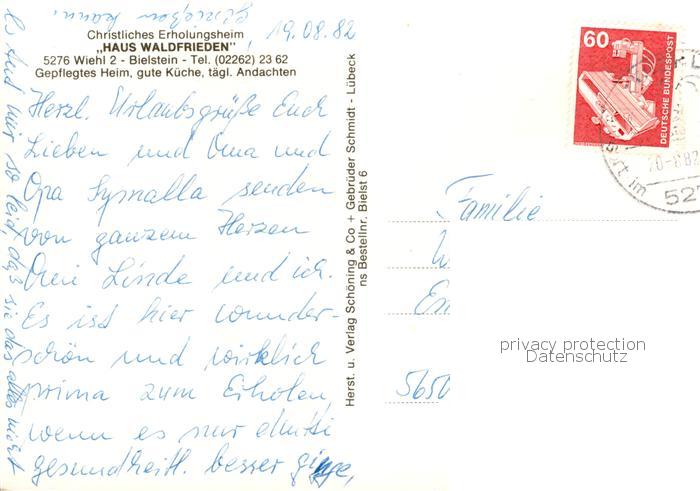 Christliches Erholungsheim
„HAUS WALDFRIEDEN"
5276 Wiehl 2 - Bielstein - Tel. (02262) 23 62
Gepflegtes Heim, gute Küche, tägl. Andachten
19.08.82
Herzl. Urlaubsgrüße Euch
Lieben und Oma und
Opa senden
von ganzem Herzen
Linde und ich.
Es ist hier wunder-
schön und wirklich
prima zum Erholen,
wenn es nur
gesundheitl. besser ginge,
Es tut mir so leid, daß sie das alles nicht
genießen kann.
Herst. u. Verlag Schöning & Co + Gebrüder Schmidt - Lübeck
ns Bestellnr. Bielst 6
60
DEUTSCHE BUNDESPOST
20.-8.82
52
Familie
5650
privacy protection
Datenschutz